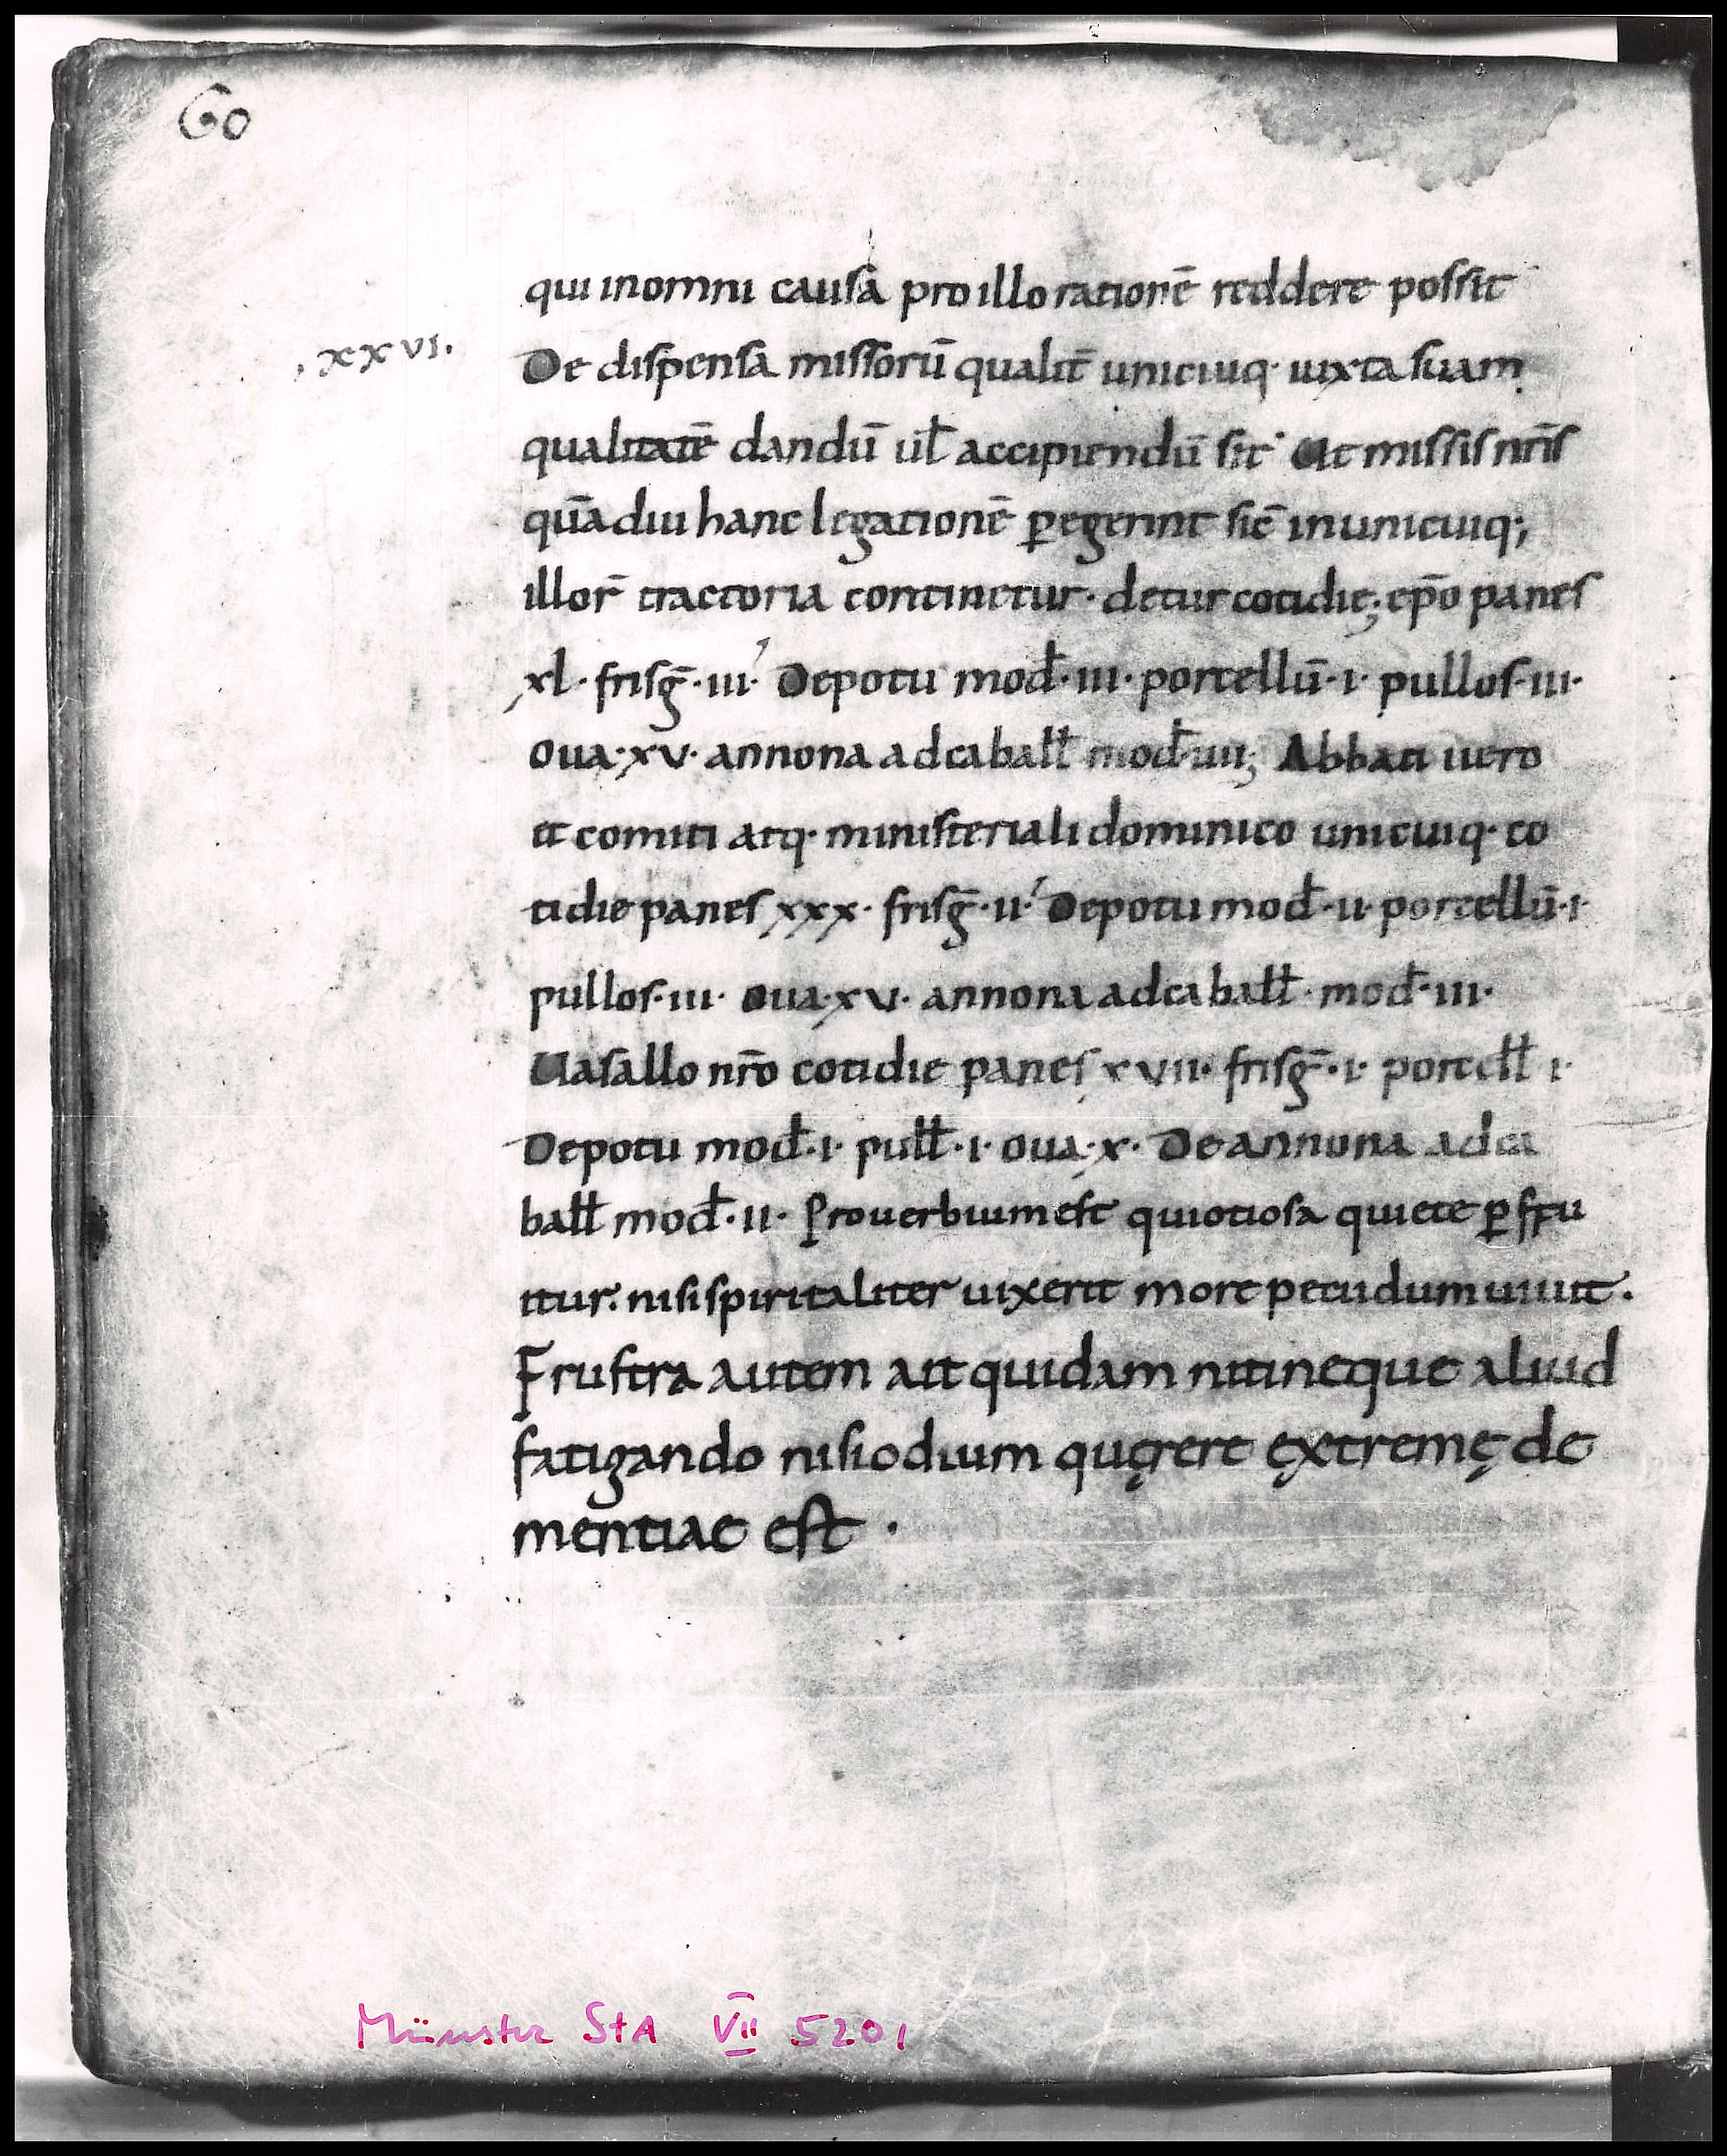 60
qui in omni causa pro illo rationē reddere possit
.xxvi.
De dispensa missorū qualit̄ unicuiq· iuxta suam
qualitatē dandū ul̄ accipiendū sit· Ut missis nr̄is
quādiu hanc legationē ꝑegerint sic̄ in unicuiq;
illor̄ tractoria continetur· detur cotidie; ep̄o panes
xl· frisḡ·iii· De potu mod̄·iii· porcellū·i· pullos·iii·
oua·xv· annona ad caball̄ mod̄·iiii; Abbati uero
et comiti atq· ministeriali dominico unicuiq· co
tidie panes xxx· frisḡ·ii· De potu mod̄·ii· porcellū·i·
pullos·iii· oua·xv· annona ad caball̄· mod̄·iii·
Uasallo nr̄o cotidie panes xvii· frisḡ·i· porcell̄ i·
De potu mod̄·i· pull̄·i· oua·x· De annona ad ca
ball̄ mod̄·ii· Prouerbium est qui otiosa quiete ꝑfru
itur. nisi spiritaliter uixerit more pecudum uiuit.
Frustra autem ait quidam niti neque aliud
fatigando nisi odium quęrere ęxtremę de
mentiae est .
Münster StA VII 5201